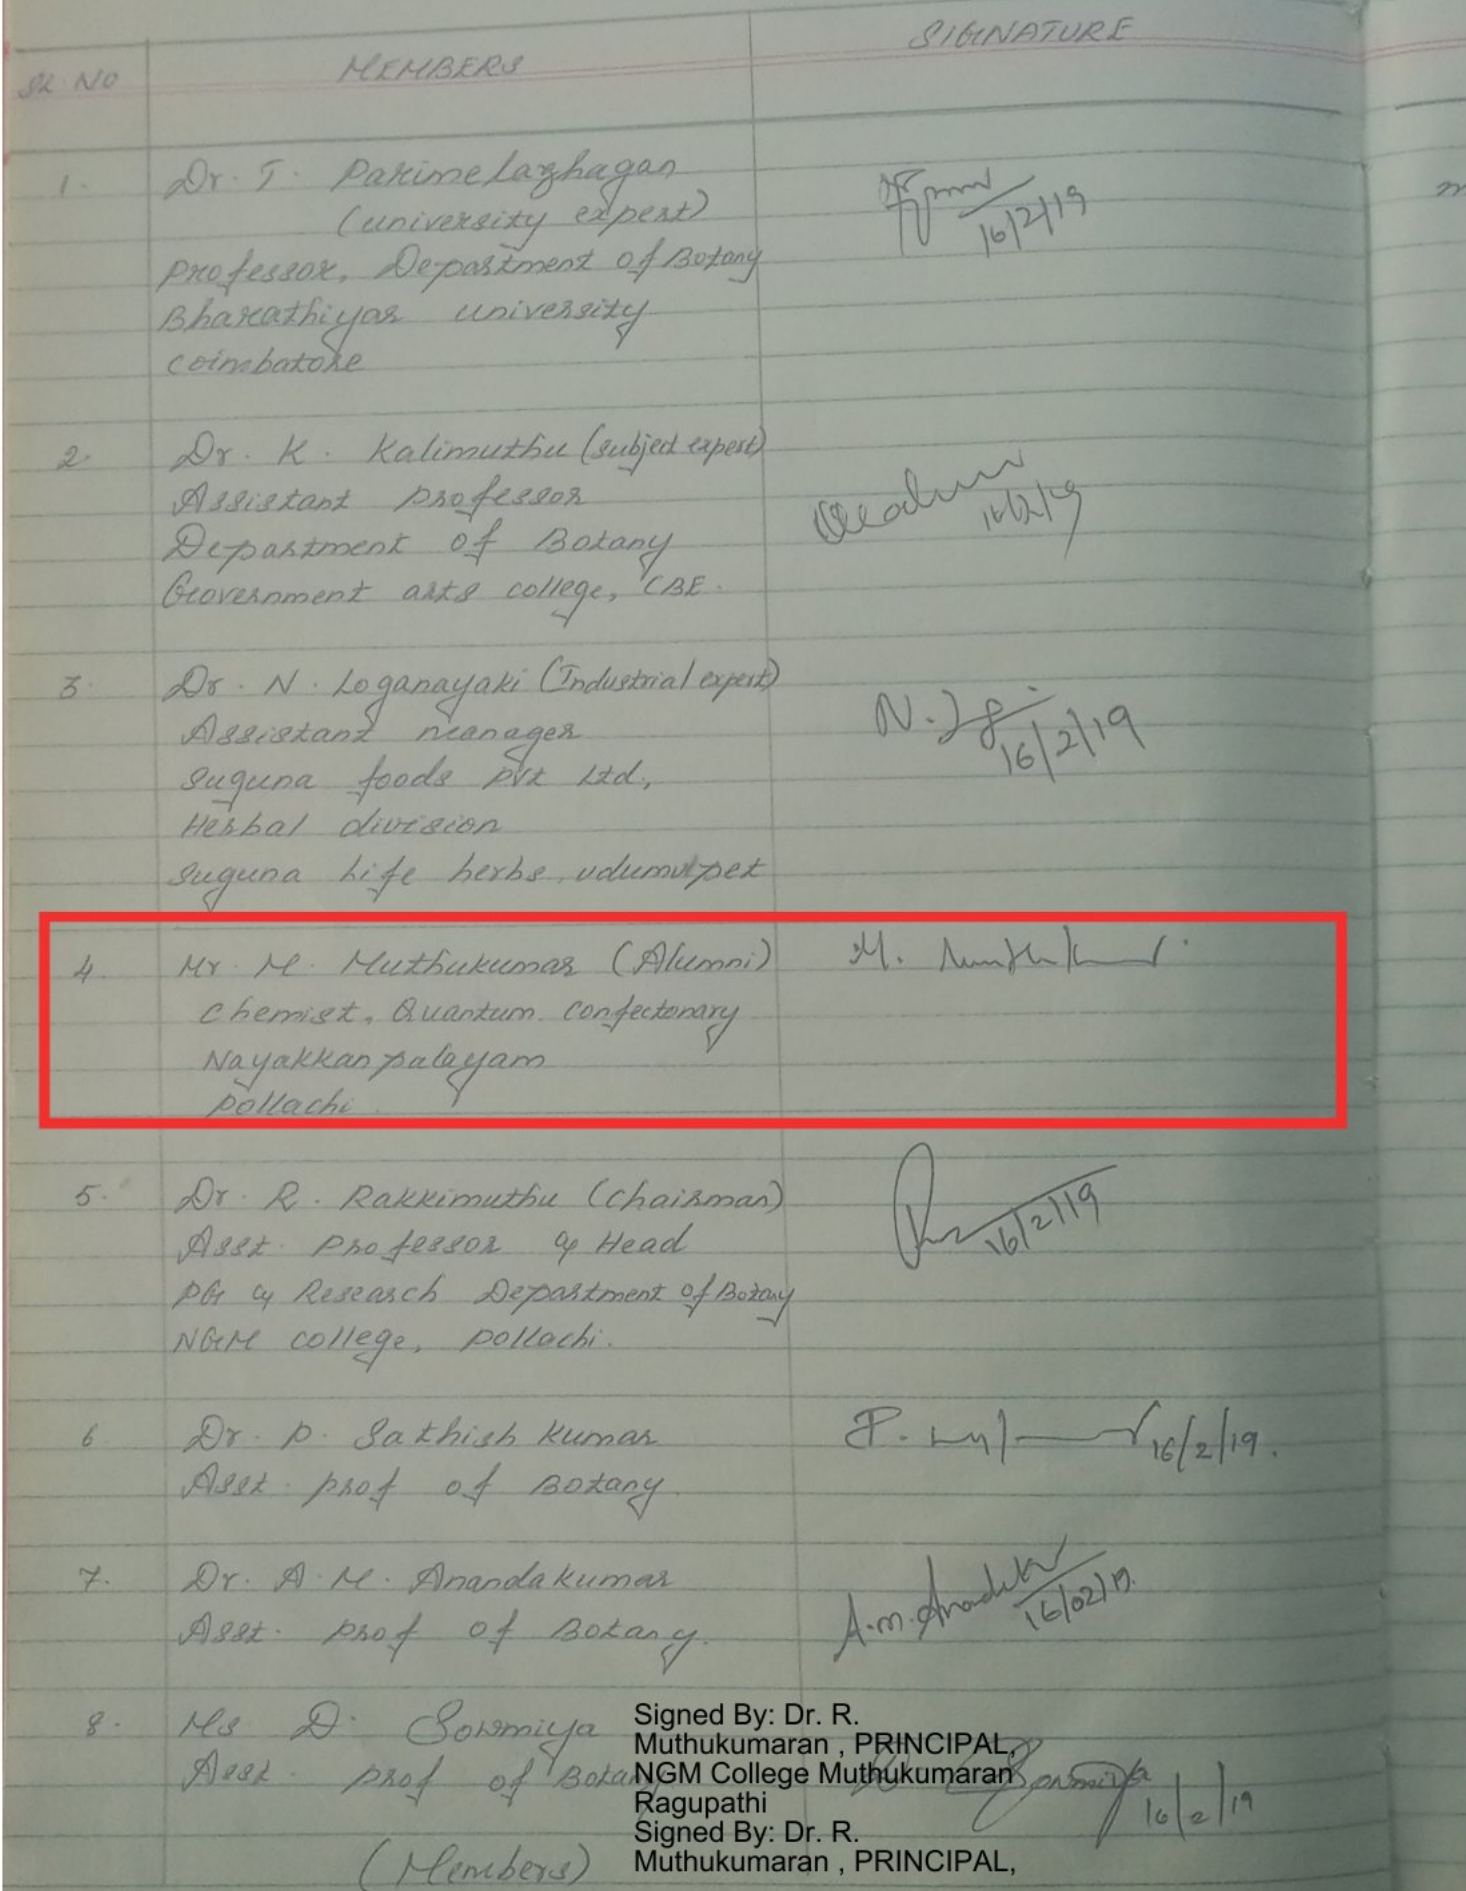 SL NO MEMBERS SIGNATURE
1. Dr. T. Parimelazhagan
(university expert) 16/2/19
Professor, Department of Botany
Bharathiyar university
Coimbatore
2. Dr. K. Kalimuthu (subject expert)
Assistant professor 16/2/19
Department of Botany
Government arts college, CBE.
3 Dr. N. Loganayaki (Industrial expert) N.
Assistant manager 16/2/19
Suguna foods pvt Ltd,
Herbal division
Suguna life herbs, udumulpet
4. Mr. M. Muthukumar (Alumni) M.
Chemist, Quantum Confectonary
Nayakkanpalayam
Pollachi.
5. Dr. R. Rakkimuthu (Chairman)
Asst. Professor & Head 16/2/19
PG & Research Department of Botany
NGM college, pollachi.
6 Dr. P. Sathish Kumar P. 16/2/19.
Asst. prof of Botany.
7. Dr. A. M. Anandakumar
Asst. prof of Botany. A.M. 16/02/19.
8. Ms D. Sowmiya
Asst. prof of Botany Sowmiya
16/2/19
(Members)
Signed By: Dr. R.
Muthukumaran , PRINCIPAL,
NGM College Muthukumaran
Ragupathi
Signed By: Dr. R.
Muthukumaran , PRINCIPAL,